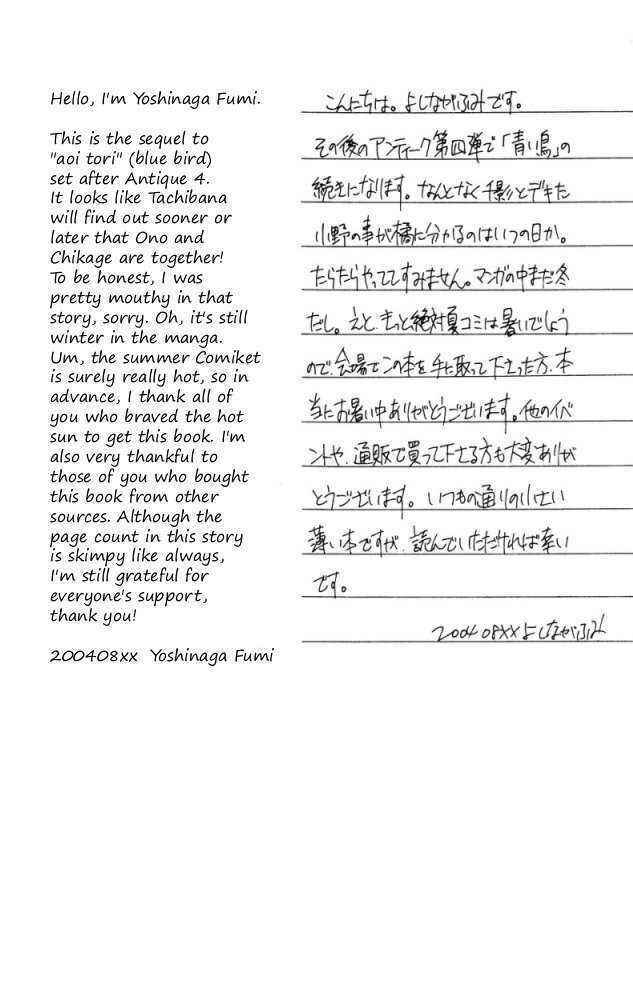 Hello, I'm Yoshinaga Fumi.
This is the sequel to
"aoi tori" (blue bird)
set after Antique 4.
It looks like Tachibana
will find out sooner or
later that Ono and
Chikage are together!
To be honest, I was
pretty mouthy in that
story, sorry. Oh, it's still
winter in the manga.
Um, the summer Comiket
is surely really hot, so in
advance, I thank all of
you who braved the hot
sun to get this book. I'm
also very thankful to
those of you who bought
this book from other
sources. Although the
page count in this story
is skimpy like always,
I'm still grateful for
everyone's support,
thank you!
200408xx Yoshinaga Fumi
こんにちは。よしながふみです。
その後のアンティーク第四弾で「青い鳥」の
続きになります。なんとなく千影とデキた
小野の事が橘に分かるのはいつの日か。
たらたらやっててすみません。マンガの中まだ冬
だし。えと、きっと絶対夏コミは暑いでしょう
ので、会場でこの本を手に取って下さった方、本
当にお暑い中ありがとうございます。他のイベ
ントや、通販で買って下さる方も大変ありが
とうございます。いつもの通りの小さい
薄い本ですが、読んでいただければ幸い
です。
200408xxよしながふみ